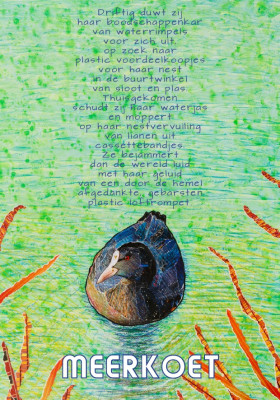 Driftig duwt zij
haar boodschappenkar
van waterrimpels
voor zich uit
op zoek naar
plastic voordeelkoopjes
voor haar nest
in de buurtwinkel
van sloot en plas.
Thuisgekomen
schudt zij haar waterjas
en moppert
op haar nestvervuiling
van lianen uit
cassettebandjes.
Ze bejammert
dan de wereld luid
met haar geluid
van een door de hemel
afgedankte, gebarsten
plastic loftrompet.
MEERKOET